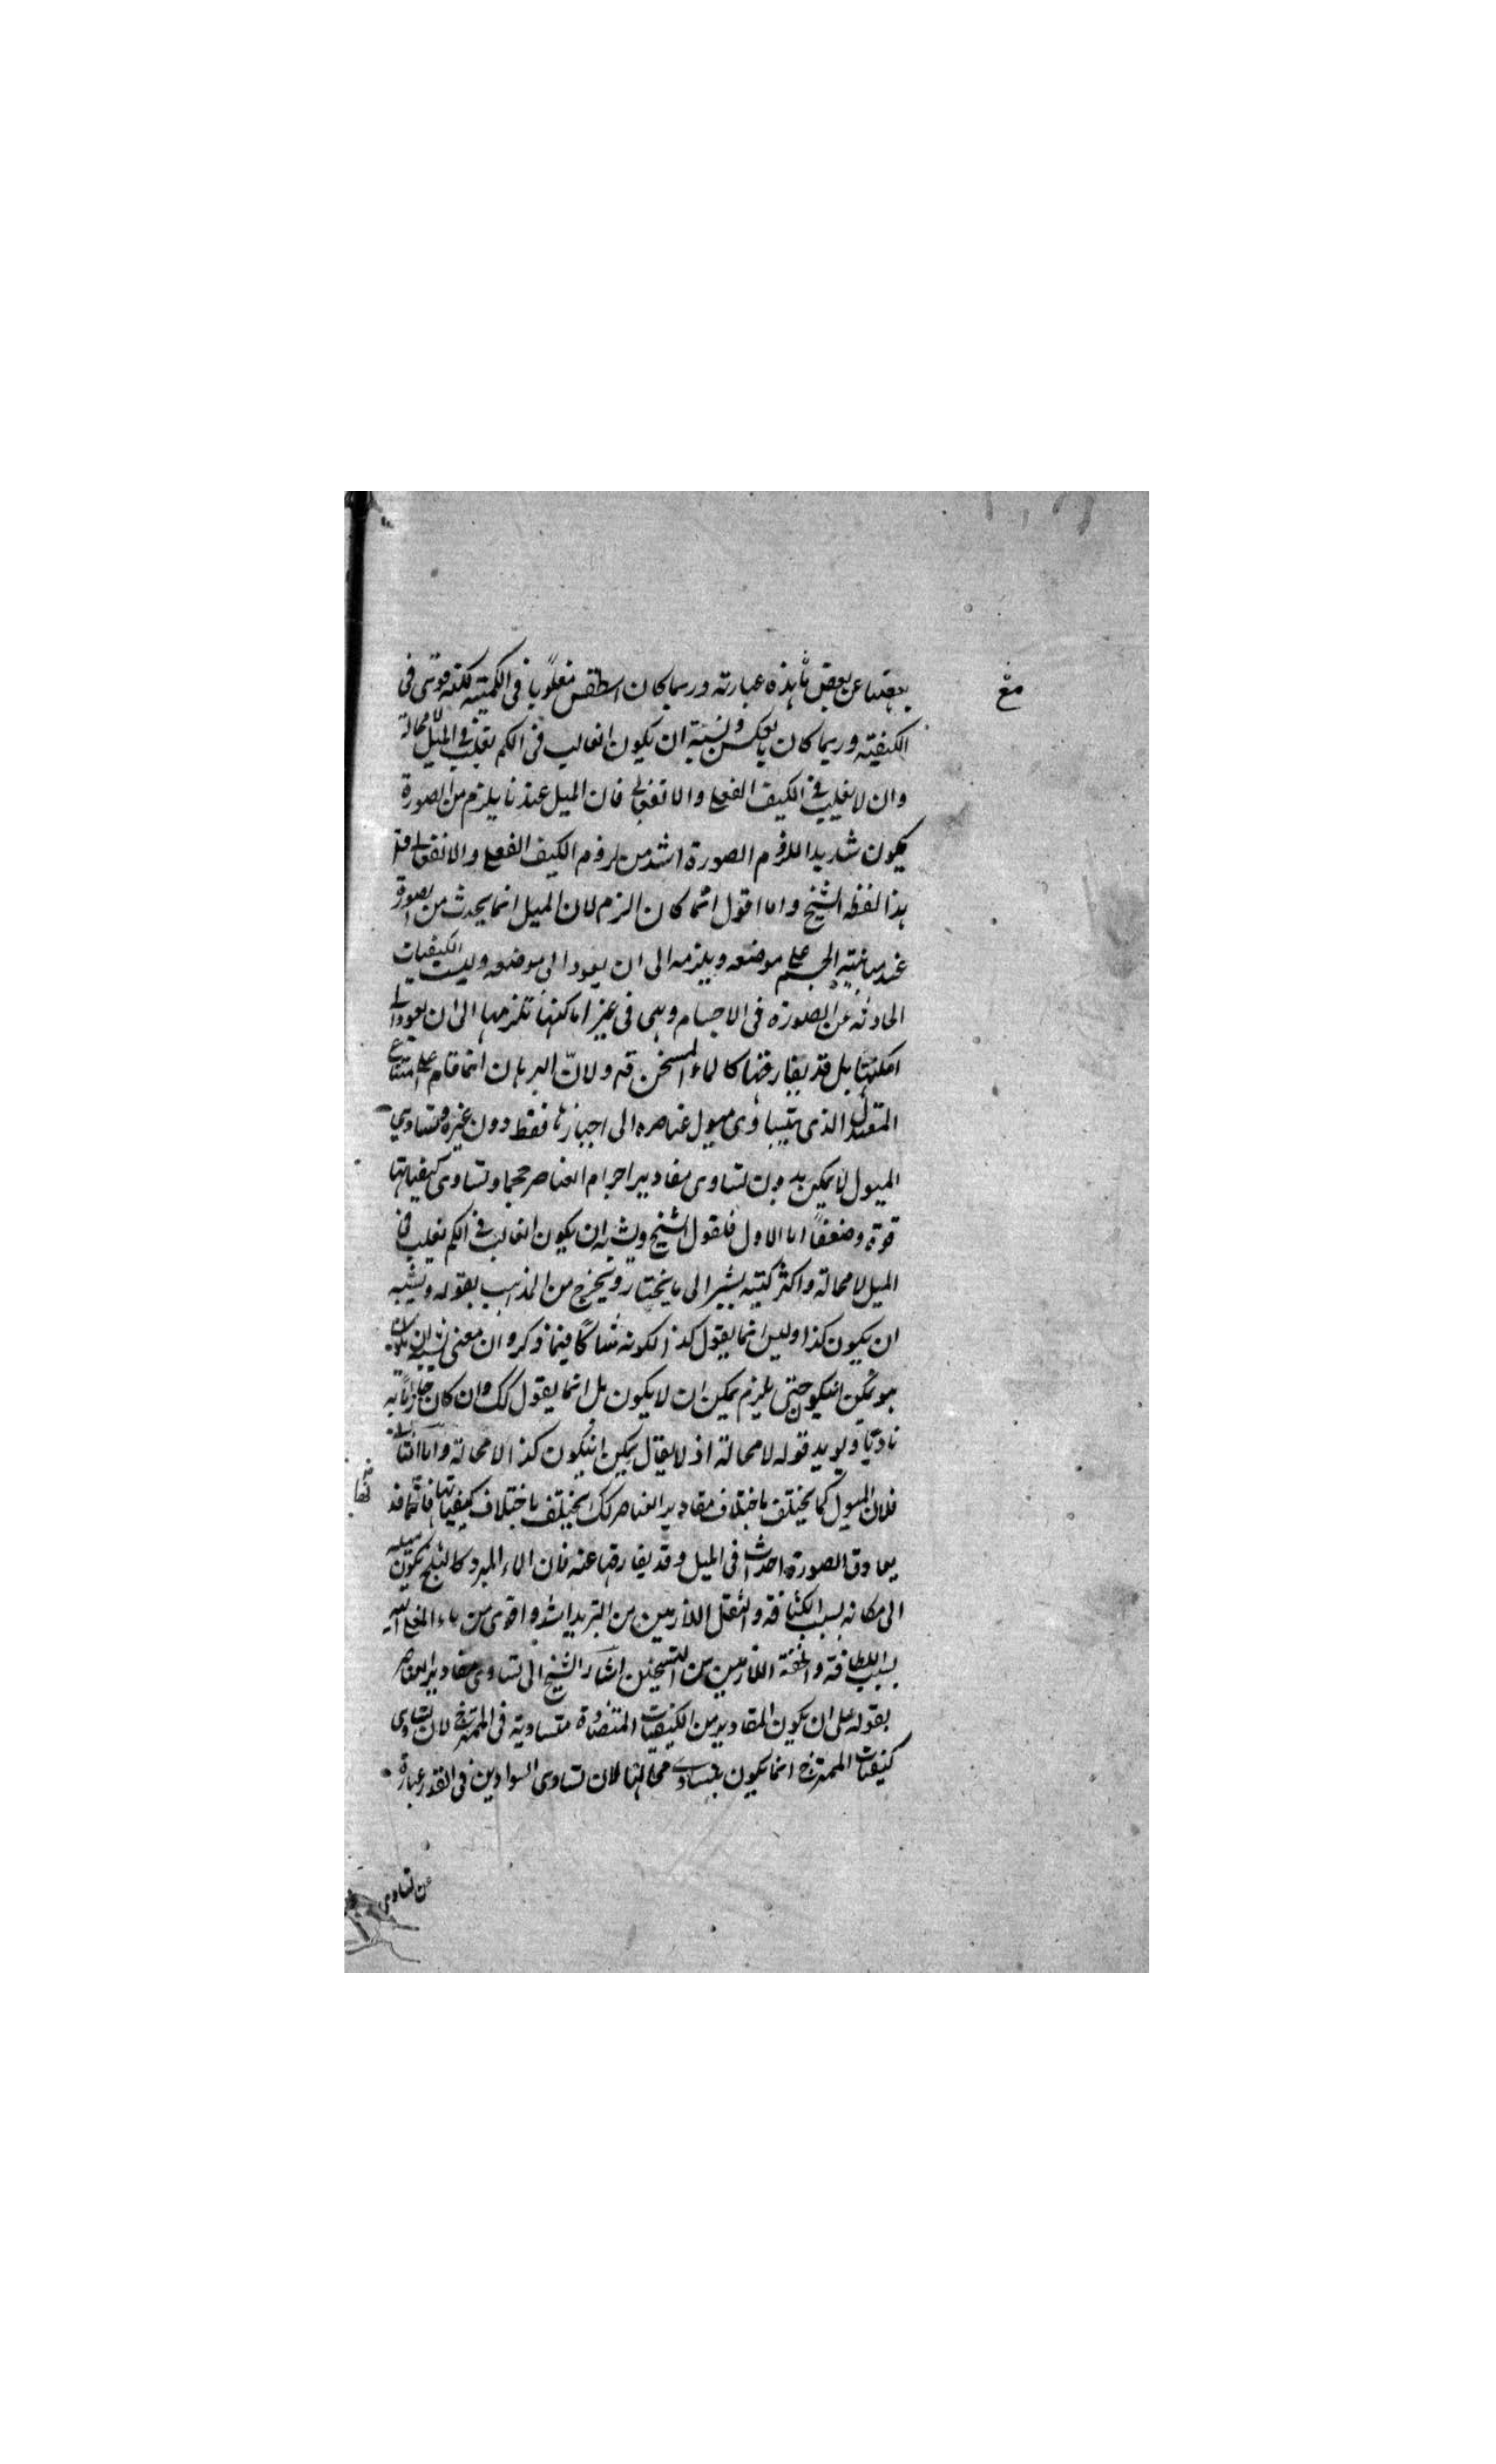 بعضها عن بعض ما هذه عبارته وربما كان اسطقس مغلوبا فى الكمية لكنه قوى فى
الكيفية وربما كان بالعكس ويشبه ان يكون الغالب فى الكم يغلب فى الميل لا محالة
وان لا يغلب فى الكيف الفعلى والانفعالى فان الميل عندنا يلزم من الصورة
فيكون شديد اللزوم الصورة اشد من لزوم الكيف الفعلى والانفعالى
هذا لفظ الشيخ وانا اقول انما كان الزم لان الميل انما يحدث من الصورة
عند مباينة الجسم على موضعه ويلزمه الى ان يعود الى موضعه وليست الكيفيات
الحادثة عن الصورة فى الاجسام وهى فى غير اماكنها تلزمها الى ان يعود الى
امكنتها بل قد يفارقها كالماء المسخن ولان البرهان انما قام على امتناع
المعتدل الذى يتساوى ميول عناصره الى احيازها فقط دون غيره وتساوى
الميول لا يمكن بدون تساوى مقادير اجرام العناصر حجما وتساوى كيفياتها
قوة وضعفا اما الاول فلقول الشيخ ويشبه ان يكون الغالب فى الكم يغلب فى
الميل لا محالة واكثر كتبه يشير الى ما يختار ويخرج من المذهب بقوله ويشبه
ان يكون كذا وليس انما يقول كذا لكونه شاكا فيما ذكره ان معنى يشبه ان يكون
هو يمكن ان يكون حتى يلزم يمكن ان لا يكون بل انما يقول كك وان كان جازما به
تادبا ويويد قوله لا محالة اذ لا يقال يمكن ان يكون كذا لا محالة واما الثانى
فلان الميول كما يختلف باختلاف مقادير العناصر كك يختلف باختلاف كيفياتها فانها قد
يعاوق الصورة احداث فى الميل وقد يفارقها عنه فان الماء المبرد كالثلج يكون ميله
الى مكانه بسبب الكثافة والثقل اللازمين من التبريد اشد واقوى من ماء المغلى
بسبب اللطافة والخفة اللازمين من التسخين اشار الشيخ الى تساوى مقادير العناصر
بقوله على ان يكون المقادير من الكيفيات المتضادة متساوية فى الممتزج لان تساوى
كيفيات الممتزج انما يكون بتساوى محالها لان تساوى السوادين فى القدر عبارة
عن تساوى